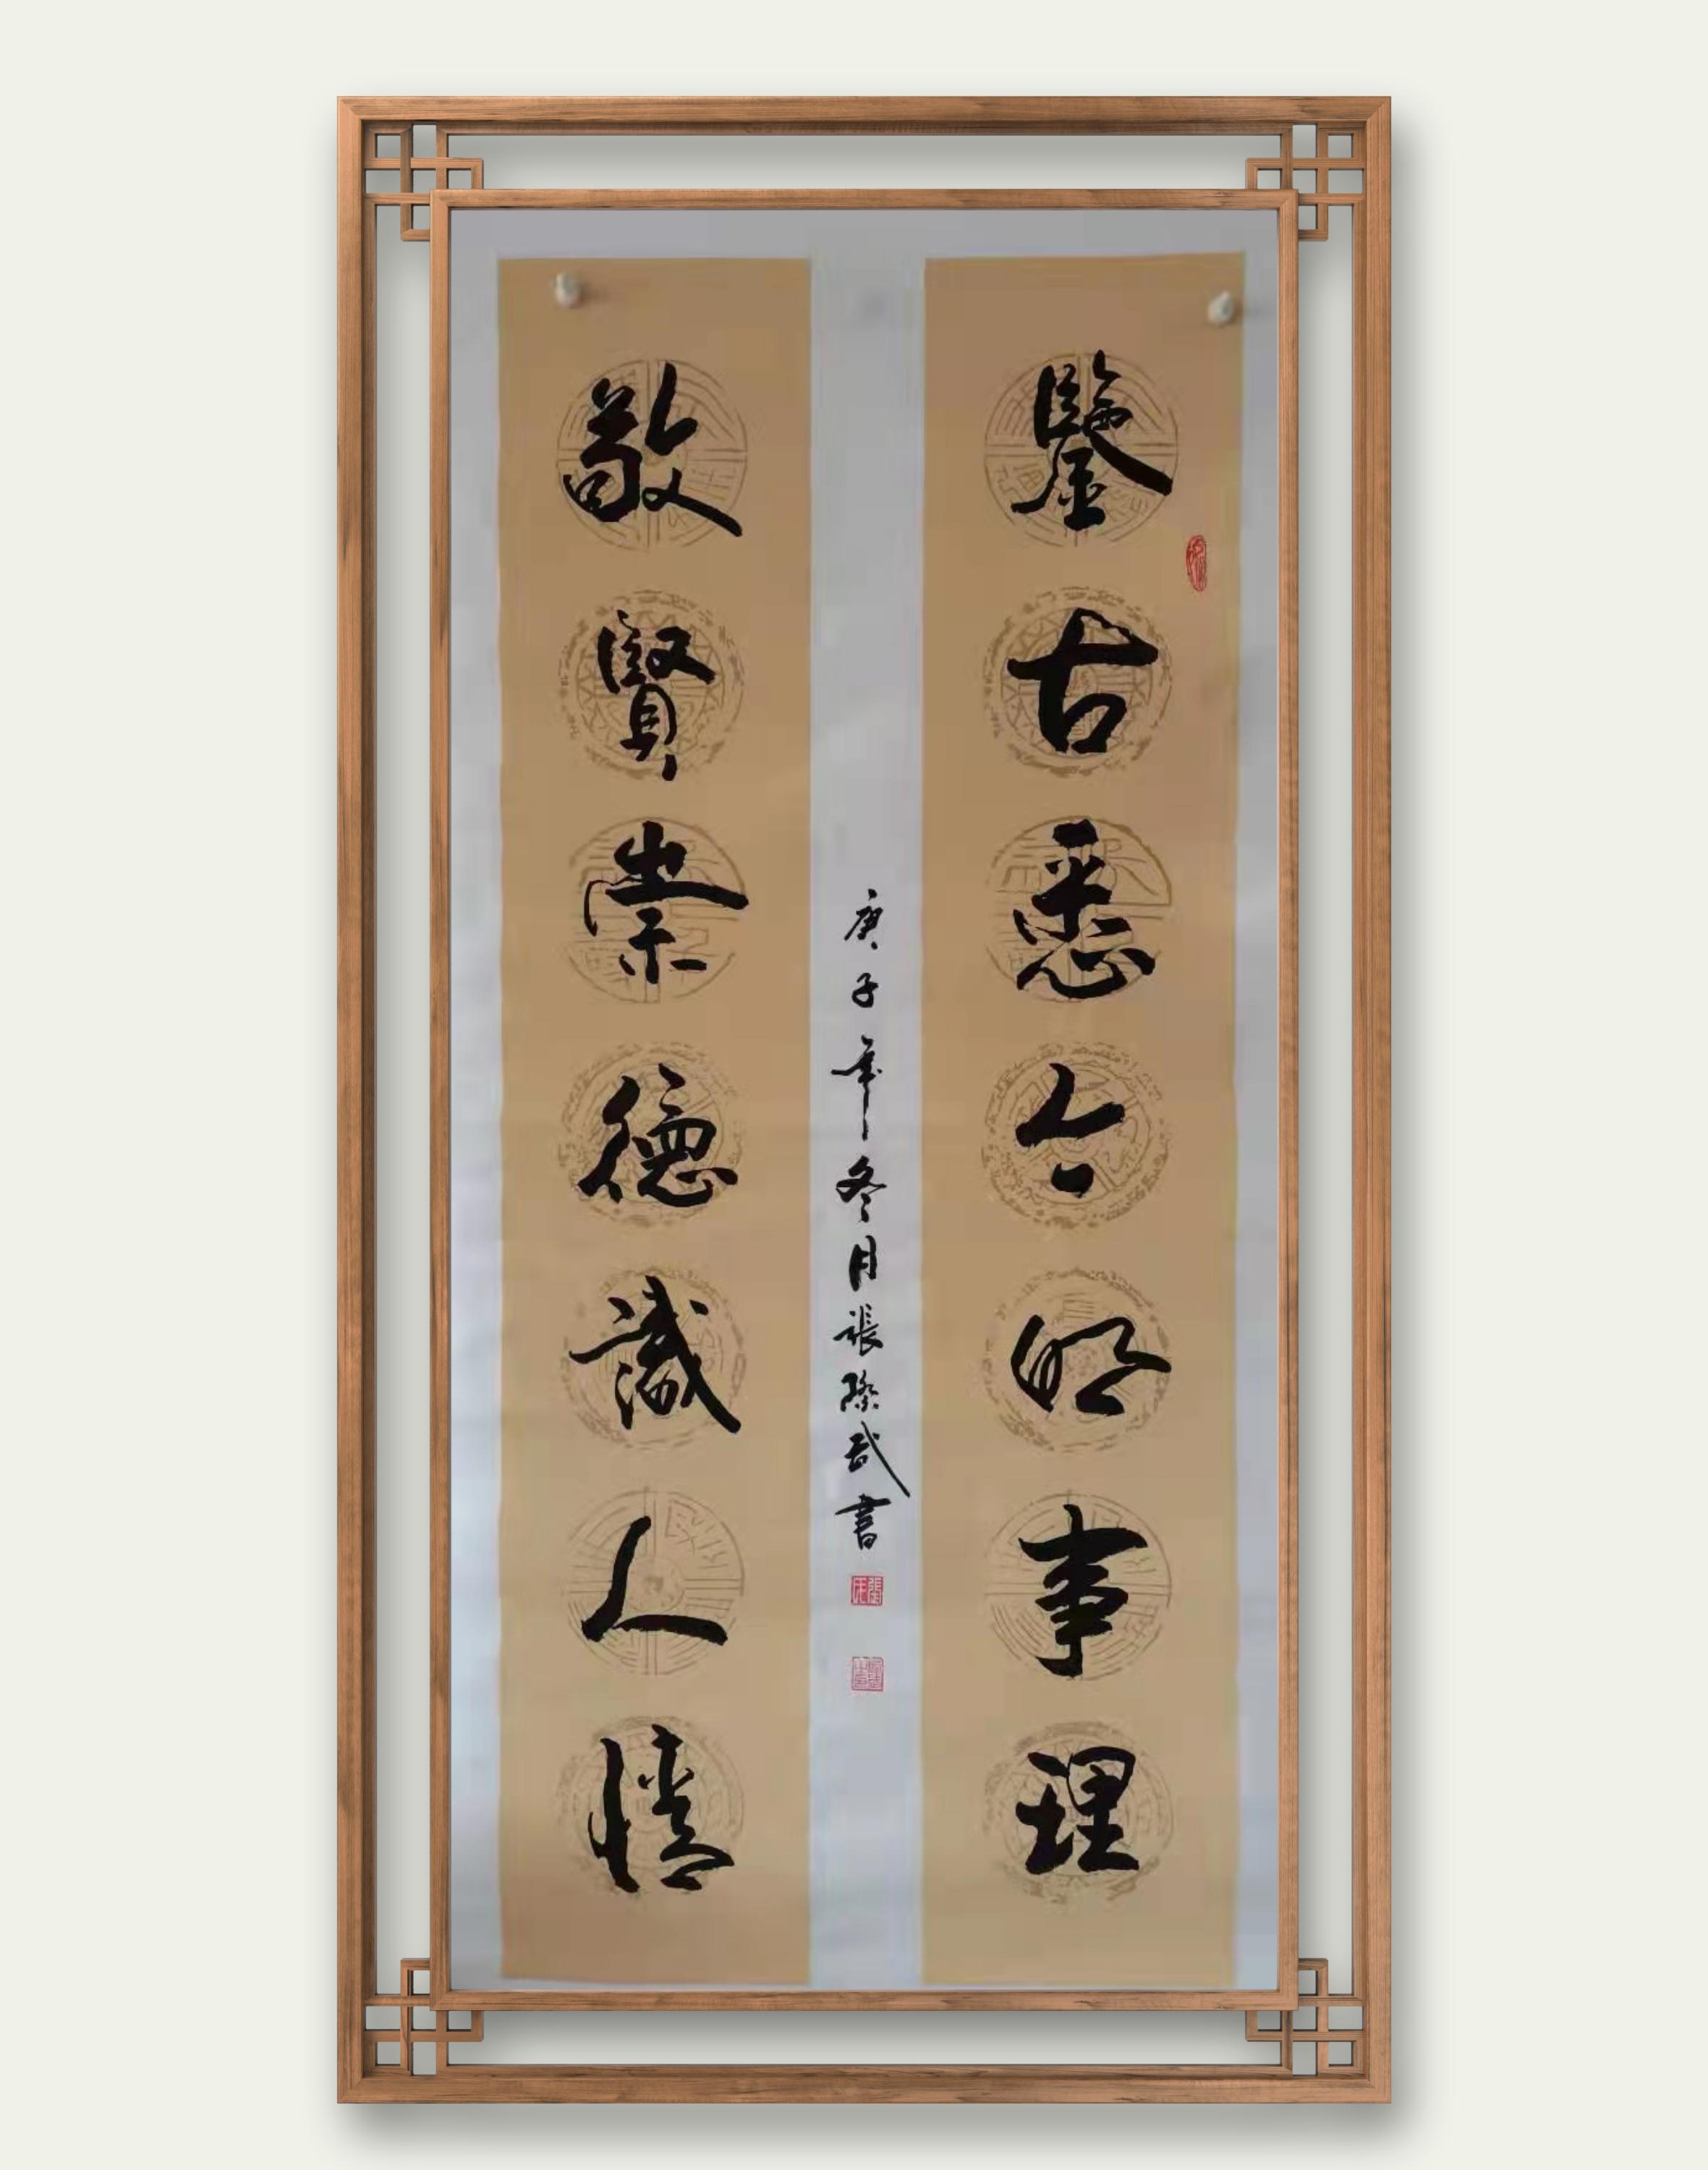 鑒古悉今明事理
敬賢崇德識人情
庚子年冬月張際武書